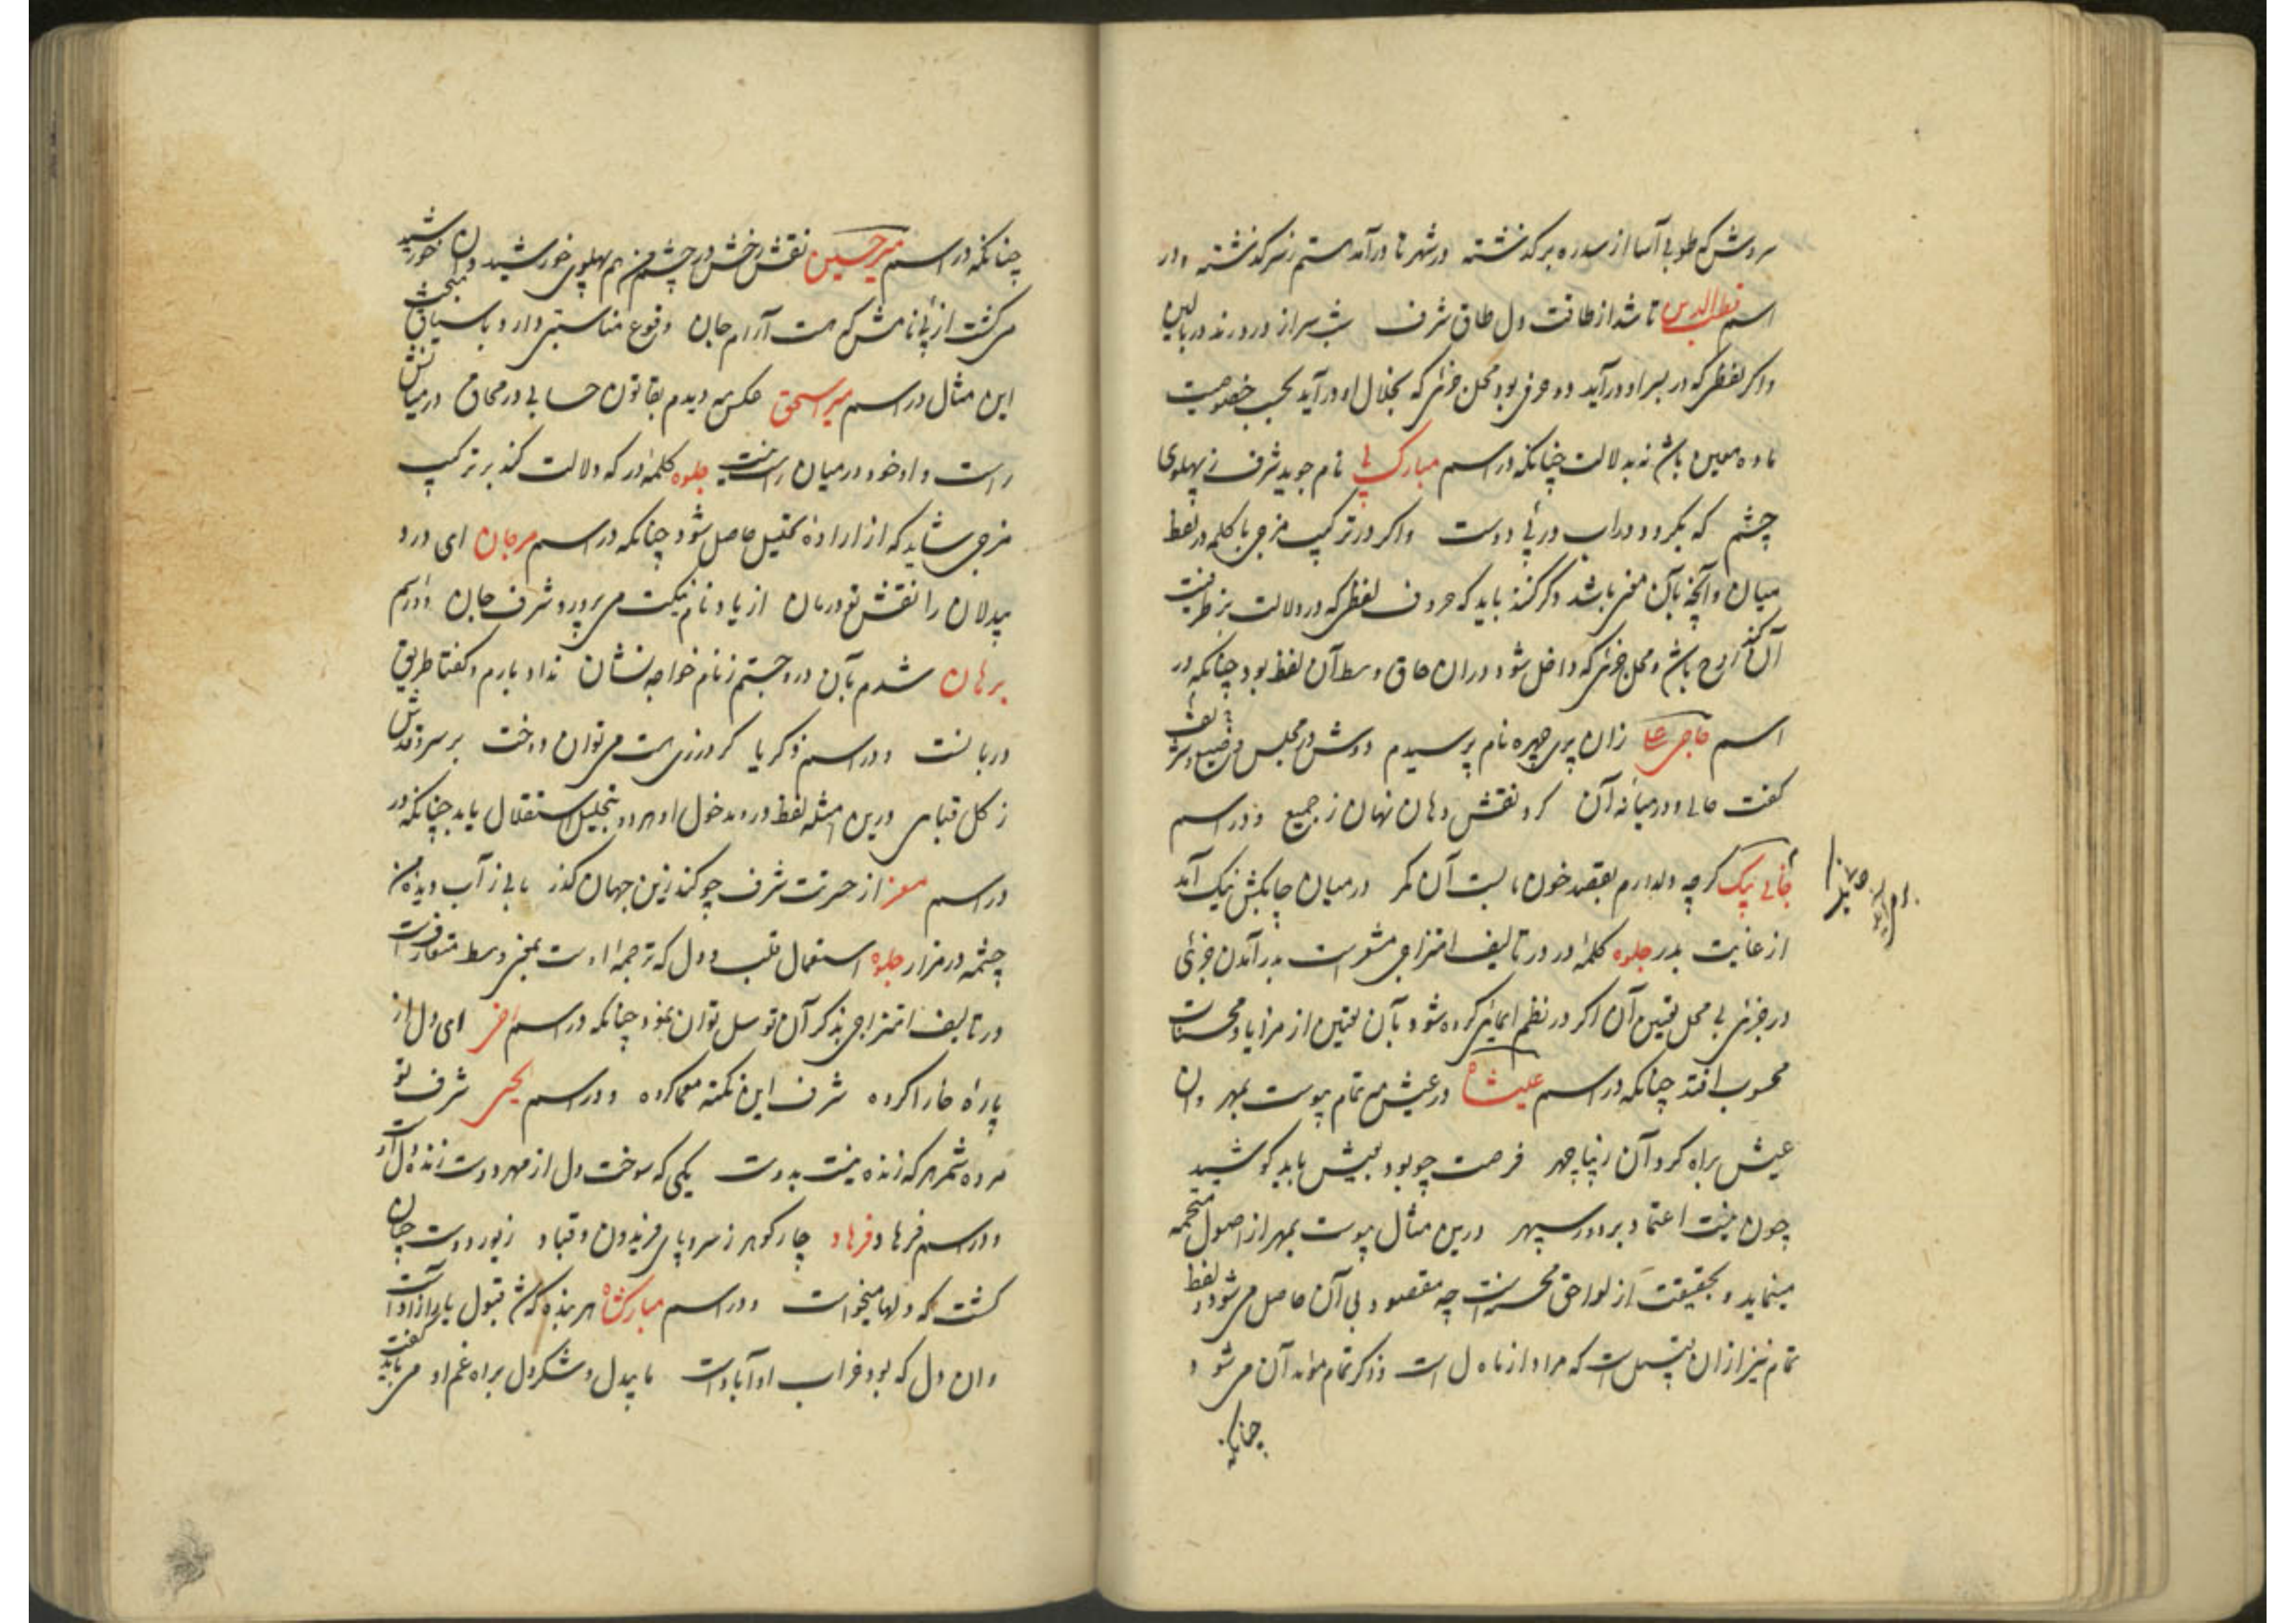 سروش که طوبی آسا از سدره برگذشته در شهر تا درآمد هستم ز سر گذشته و در
اسم قطب الدین تا شد از طاقت دل طاق شرف شب سر از درد نهد در بالین
و اگر لفظی که در سر او درآید دو حرفی بود محل جزئی که بخلال او درآید بحسب خصوصیت
ماده معین باشد نه بدلالت چنانکه در اسم مبارک پی نام جوید شرف ز پهلوی
چشم که بگرد و در آب در پی دوست و اگر در ترکیب مزجی با کلمه در لفظ
میان و آنچه بآن مخبر باشد ذکر کنند باید که حروف لفظی که در دلالت بر ظرفیت
آن باشد و محل جزئی که داخل شود در آن حاق وسط آن لفظ بود چنانکه در
اسم حاجی علی زان پری چهره نام پرسیدم دوش در مجلس
گفت حالی و در میانه آن کرد نقش دهان نهان ز جمیع و در اسم
جانی بیک گرچه دلدارم بقصد خون ما بست آن کمر در میان چابکش نیک آمد
از غایت بدر جلوه کلمه در در تالیف امتزاجی مشعر است بدرآمدن جزئی
در جزئی بی محل تعیین آن اگر در نظم ایمائی کرده شود بآن تعیین از مزایا و محسنات
محسوب افتد چنانکه در اسم عیشاه در عیش مه تمام پیوست بمهر وان
عیش براه کرد آن زیبا چهر فرصت چو بود بعیش باید کوشید
چون نیست اعتماد بر دور سپهر درین مثال پیوست بمهر از اصول
مینماید و بحقیقت از لواحق محسنه است چه مقصود بی آن حاصل می‌شود و لفظ
تمام نیز از ان قبیل است که مراد از ماه ل است و ذکر تمام مؤید آن می‌شود و
چنانکه
چنانکه در اسم میر حسین نقش رخش در چشم من هم پهلوی خورشید دان خورشید
می گشت از پی نامش که هست آرام جان وقوع مناسبتی دارد با سیاق
این مثال در اسم میر اسحق عکس مه دیدم بقانون حسابی در محاق در میانش
راست و او خود در میان راست نیست جلوه کلمه در که دلالت کند بر ترکیب
مزجی شاید که از اراده تحلیل حاصل شود چنانکه در اسم مرجان ای درد
بیدلان را نقش تو درمان از یاد نام نیکت می پرورد شرف جان و در اسم
برهان شدم بآن در و جستم ز نام خواجه نشان نداد بارم و گفتا طریق
دربانست و در اسم زکریا گر درزی مست می توان دوخت بر سرو قدش
ز گل قبایی درین امثله لفظ در و مدخول او هر دو بتحلیل استقلال یابد چنانکه در
در اسم معز از حسرتت شرف چو کند زین جهان گذر یابی ز آب دیده من
چشمه در مزار جلوه استعمال قلب و دل که ترجمه اوست بمخبر وسط متعارفست
در تالیف امتزاجی بذکر آن توسل توان نمود چنانکه در اسم ای دل از
پاره خارا کرده شرف این نکته معما کرده و در اسم یحیی شرف تو
مرده شمر هر که زنده نیست بدوست یکی که سوخت دل از مهر دوست زنده دل است
و در اسم فرهاد فرهاد چار گوهر ز سر و پای فریدون و قباد زیور دوست چنان
گشت که دلها میخواست و در اسم مبارکشاه هر بنده کش قبول یار آزادست
وان دل که بود خراب او آبادست ما بیدل و شکر دل براه غم او می باید گفت